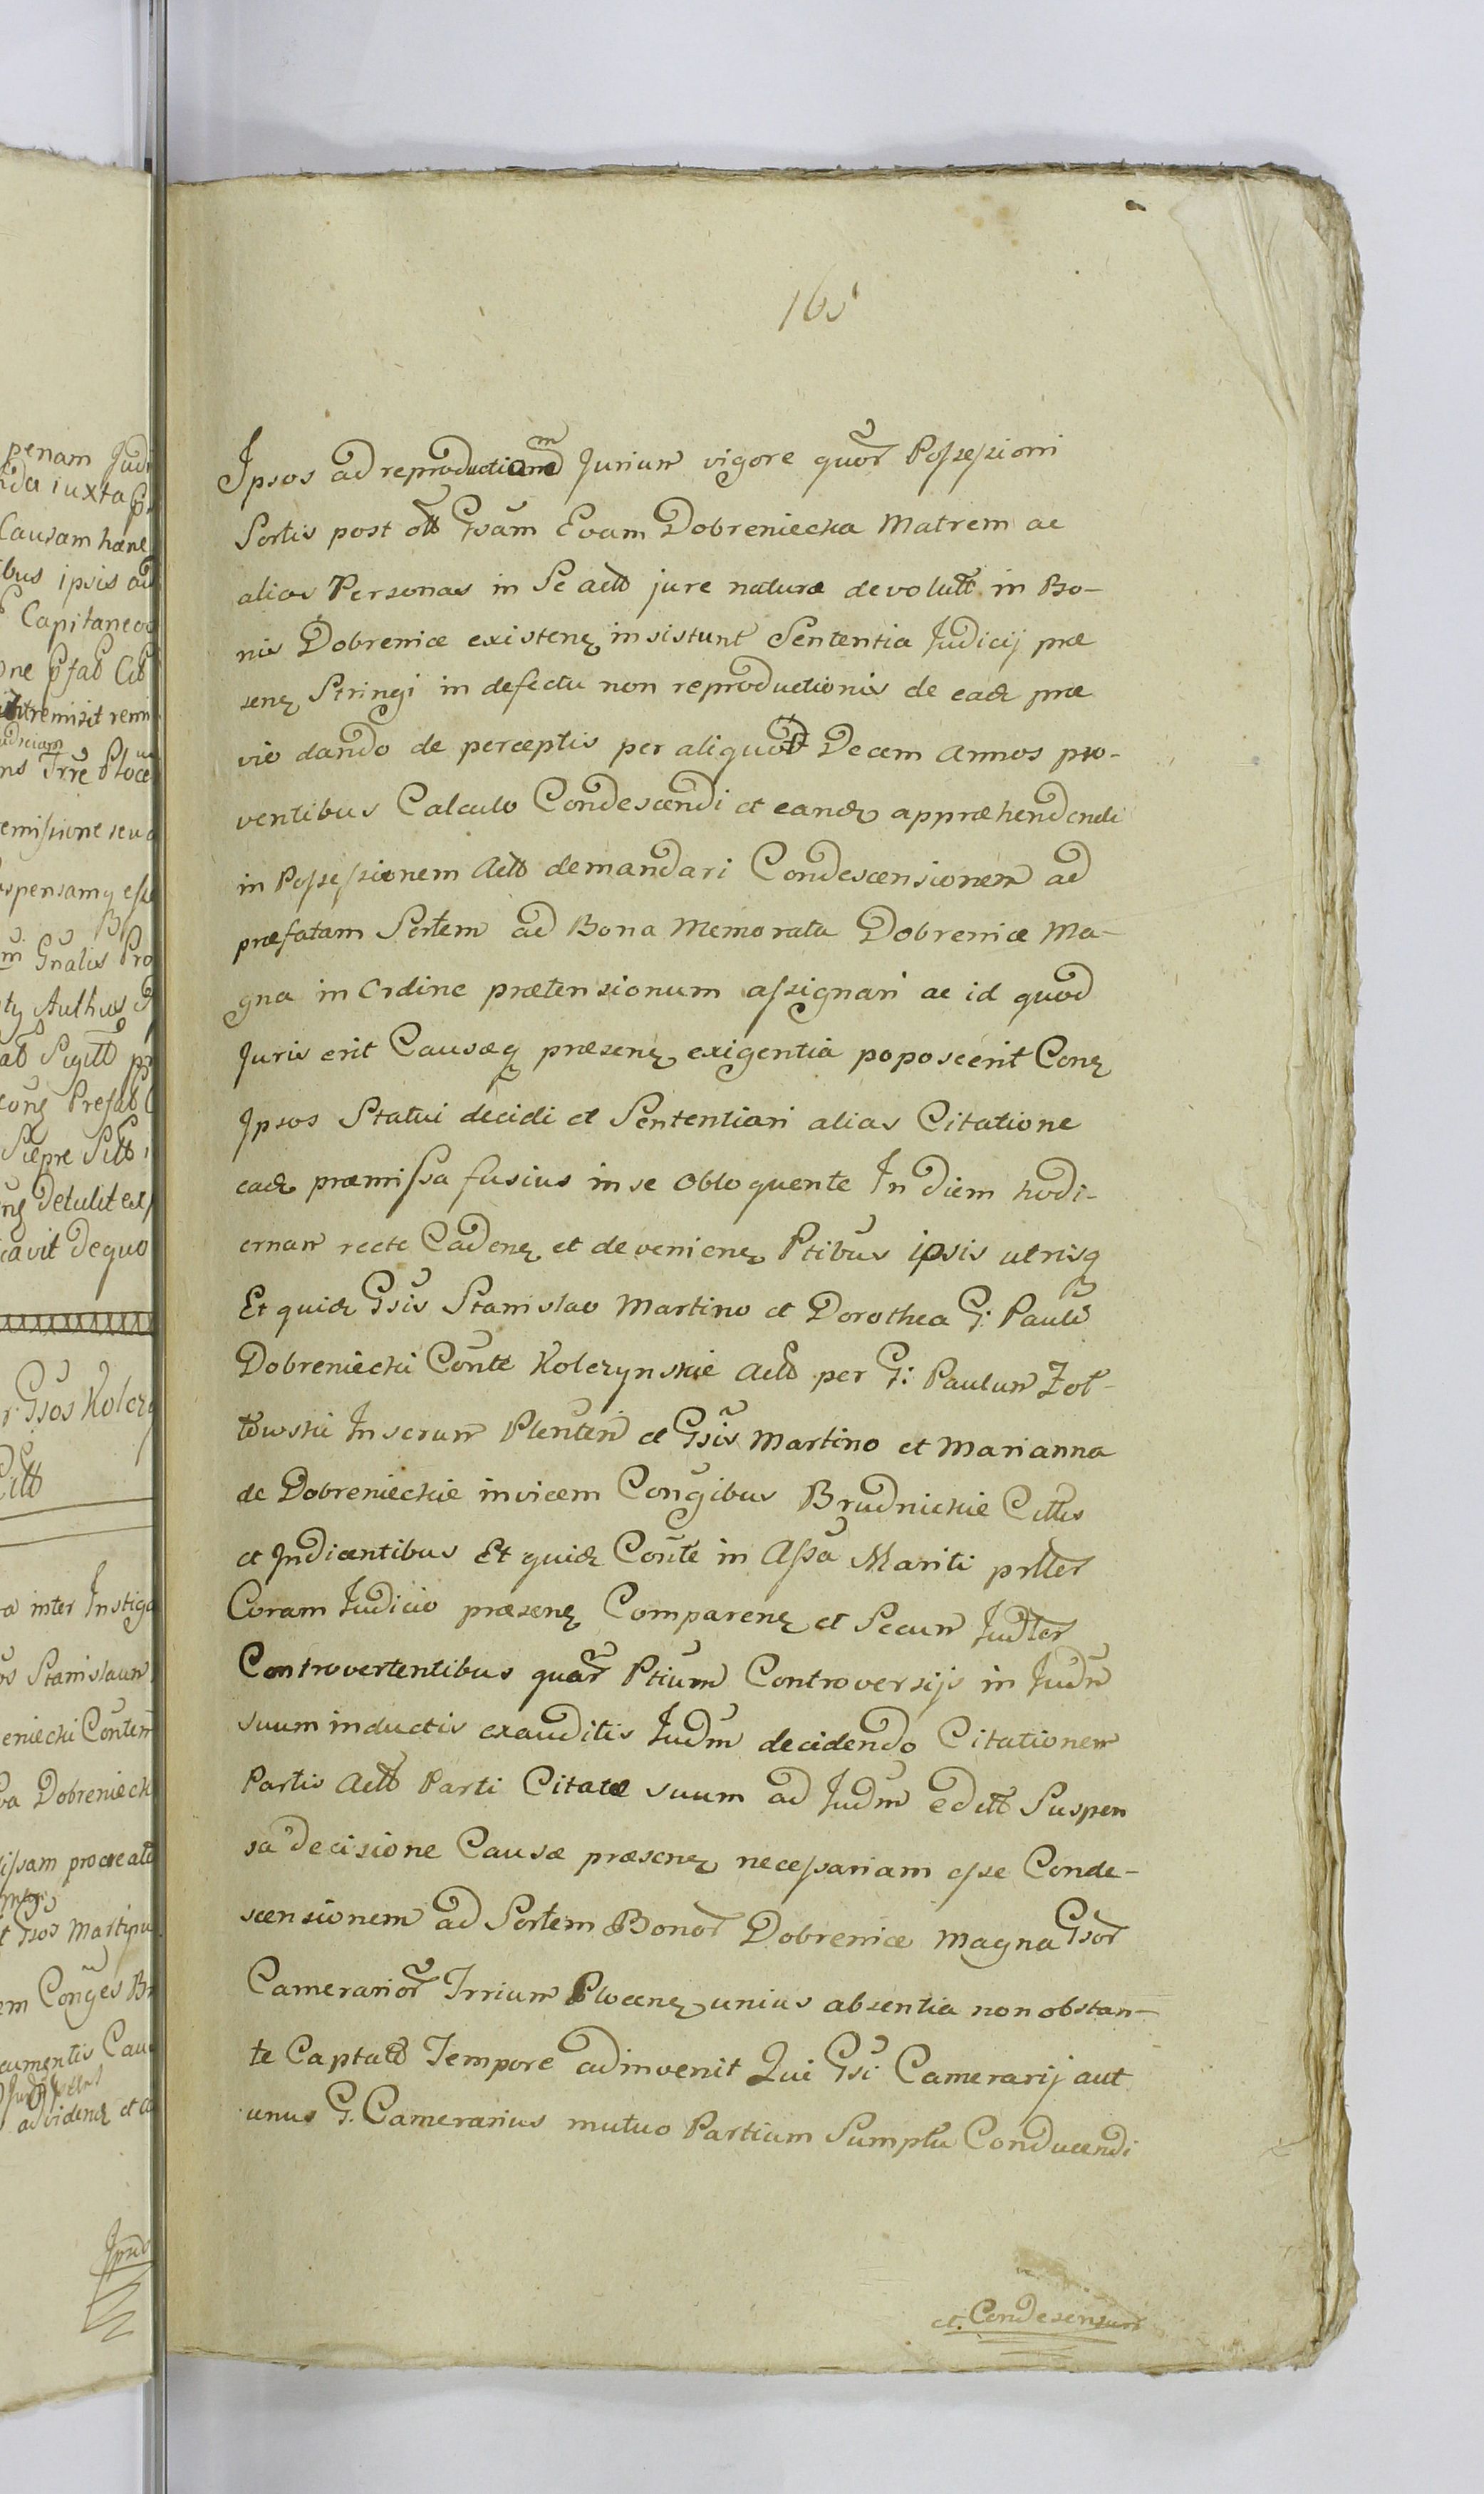 165
Ipsos ad reproductionem Jurium vigore quor Possessioni
Sortis post olt Gsam Evam Dobreniecka Matrem ac
alias Personas in Se actt jure naturæ devolutt in Bo-
nis Dobrenice existenz insistunt Sententia Judicij præ
senz Stringi in defectu non reproductionis de eadz præ
vio dando de perceptis per aliquot Decem annos pro-
ventibus Calculo Condescendi et eandz appræhendendi
in Possessionem Actt demandari Condescensionem ad
præfatam Sortem ad Bona Memorata Dobrenice Ma-
gna in Ordine prætensionum assignari ac id quod
Juris erit Causæq præsenz exigentia poposcerit Conz
Ipsos Statui decidi et Sententiari alias Citatione
eadz præmissa fusius in se obloquente In diem hodi-
ernam recte Cadenz et devenienz Ptibus ipsis utrisq
Et quidz Gsis Stanislao Martino et Dorothea G: Pauli
Dobreniecki Conte Kolczynskie Actt per G: Paulum Zoł-
towski Inserum Plenten et Gsis Martino et Marianna
de Dobrenieckie invicem Congibus Brudnickie Cittis
et Indicentibus Et quidz Conte in Assa Mariti prltter
Coram Judicio præsenz Comparenz et Secum Judter
Controvertentibus quar Ptium Controversijs in Judm
suum inductis exauditis Judm decidendo Citationem
Partis Actt Parti Citatæ suum ad Judm editt Suspen
sa decisione Causæ præsenz necessariam esse Conde-
scensionem ad Sortem Bonor Dobrenice Magna Gsor
Camerarior Trrium Plocenz unius absentia non obstan-
te Captatt Tempore adinvenit Qui Gsi Camerarij aut
unus G. Camerarius mutuo Partium Sumptu Conducendi
et Condescensuri